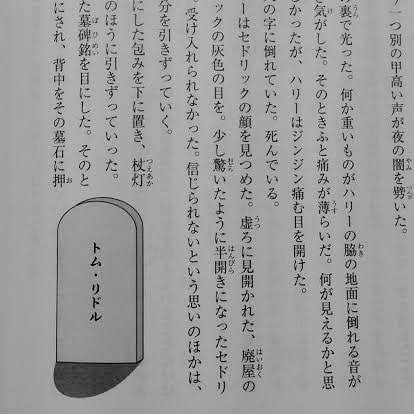 一つ別の甲高い声が夜の闇を劈いた。
の裏で光った。何か重いものがハリーの脇の地面に倒れる音が
気がした。そのときふと痛みが薄らいだ。何が見えるかと思
しかったが、ハリーはジンジン痛む目を開けた。
の字に倒れていた。死んでいる。
ーはセドリックの顔を見つめた。虚ろに見開かれた、廃屋の
ックの灰色の目を。少し驚いたように半開きになったセドリ
受け入れられなかった。信じられないという思いのほかは、
分を引きずっていく。
にした包みを下に置き、杖灯
のほうに引きずっていった。
た墓碑銘を目にした。そのと
にされ、背中をその墓石に押
トム・リドル